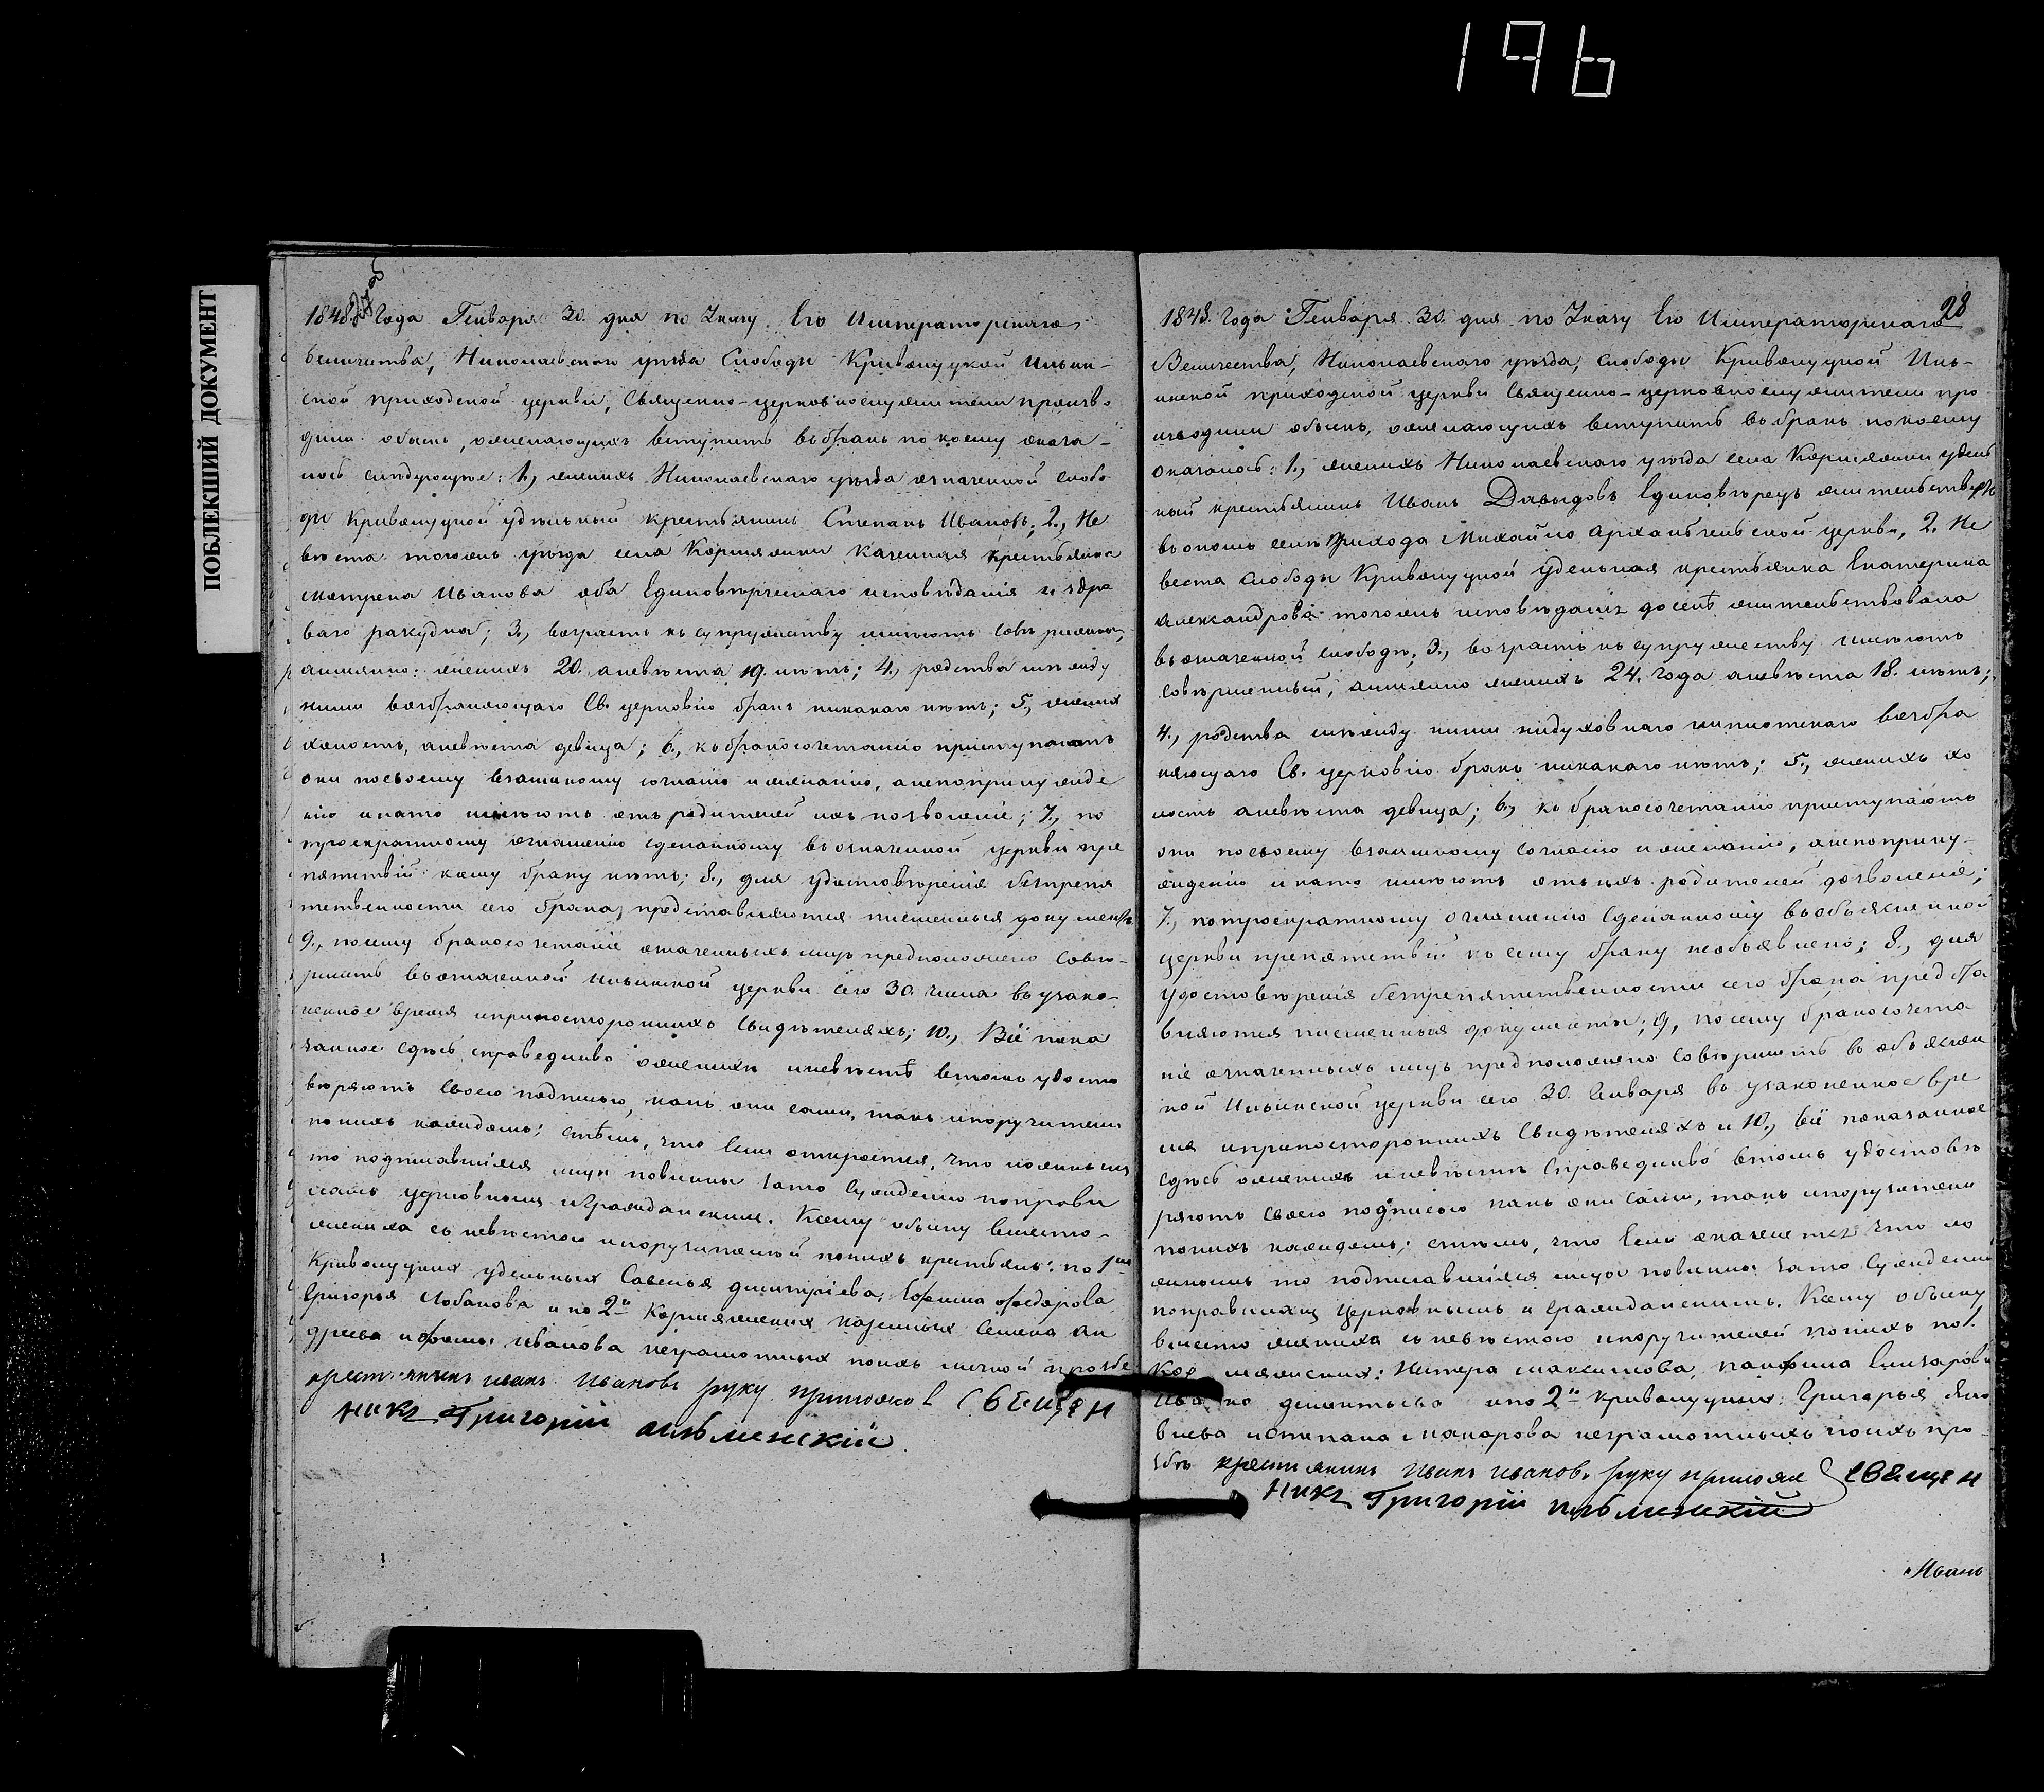 196
ПОБЛЕКШИЙ ДОКУМЕНТ
1848. года Генваря 30. дня по Указу Его Императорскаго
Величества, Николаевскаго уѣзда Слободы Криволуцкой Ильин-
ской приходской церкви, Священно-церковнослужители произво
дили обыскъ, о желающихъ вступить въ бракъ по коему оказа-
лось слѣдующее: 1., женихъ Николаевскаго уѣзда означенной слобо
ды Криволуцкой удѣльный крестьянинъ Степанъ Ивановъ; 2., Не
вѣста тогожъ уѣзда села Корнеяжки казенная крестьянка
Матрена Иванова оба Единовѣрческаго исповѣданія и здра
ваго разсудка; 3., возрастъ къ супружеству имѣютъ совершенный,
а именно: женихъ 20. а невѣста 19. лѣтъ; 4., родства между
ними возбраняющаго Св. церковію бракъ никакаго нѣтъ; 5., женихъ
холостъ, а невѣста девица; 6., къ бракосочетанію приступаютъ
они по своему взаимному согласію и желанію, а не по принужде
нію и на то имѣютъ отъ родителей ихъ позволеніе; 7., по
троекратному оглашенію сделанному въ означенной церкви пре
пятствій къ сему браку нѣтъ; 8., для удостовѣренія безпрепя
тственности сего брака, представляются писменныя документы
9., посему бракосочетаніе означенныхъ лицъ предположено совер-
шить въ означенной Ильинской церкви сего 30. числа въ узако-
ненное время и при постороннихъ свидѣтеляхъ; 10., Всё пока
занное здѣсь справедливо о женихѣ и невѣстѣ въ томъ удосто
вѣряютъ своею подписью, какъ они сами, такъ и поручители
по нихъ каждомъ; съ тѣмъ, что если откроется, что ложнымъ
то подписавшіяся лица повинны за то сужденію по прави
ламъ церковнымъ и гражданскимъ. К сему обыску вместо
жениха съ невѣстою и поручителей по нихъ крестьянъ: по 1мъ
Криволуцкихъ удельныхъ Савелья Дмитріева, Ефима Федорова,
Григорья Лобанова и по 2й Корнеяжскихъ казенныхъ Семена Ан
дреева и Фомы Иванова неграмотныхъ по ихъ личной прозбе
крестьянинъ Иванъ Ивановъ руку приложил Свещен
никъ Григорій
28
1848. года Генваря 30. дня по Указу Его Императорскаго
Величества, Николаевскаго уѣзда, слободы Криволуцкой Иль-
инской приходской церкви Священно-церковнослужители про
изводили обыскъ, о желающихъ вступить въ бракъ по коему
оказалось: 1., женихъ Николаевскаго уѣзда села Корнеяжки удель
ный крестьянинъ Иванъ Давыдовъ Единовѣрецъ жительствуетъ
въ ономъ селѣ прихода Михайло Архангельской церкви, 2. Не
веста слободы Криволуцкой удельная крестьянка Екатерина
Александрова тогожъ исповѣданія доселѣ жительствовала
въ означенной слободѣ; 3., возрастъ къ супружеству имѣютъ
совѣршенный, а именно женихъ 24. года а невѣста 18. лѣтъ;
4., родства между ними ни духовнаго ни плотскаго возбра
няющаго Св. церковію бракъ никакаго нѣтъ; 5., женихъ хо
лостъ а невѣста девица; 6., къ бракосочетанію приступаютъ
они по своему взаимному согласію и желанію, а не по прину-
жденію и на то имѣютъ отъ ихъ родителей дозволеніе;
7., по троекратному оглашенію сделанному въ объясненной
церкви препятствій къ сему браку не объявлено; 8., для
удостовѣренія безпрепятственности сего брака предста
вляются писменныя документы; 9, посему бракосочета
ніе означенныхъ лицъ предположено совѣршить въ объяснен
ной Ильинской церкви сего 30. Января въ узаконенное вре
мя и при постороннихъ свидѣтеляхъ и 10., всё показанное
здѣсь о женихѣ и невѣстѣ справедливо въ томъ удостовѣ
ряютъ своею подписью какъ они сами, такъ и поручители
по нихъ каждомъ; съ тѣмъ, что если окажется что ло
жнымъ то подписавшіяся лица повинны за то сужденію
по правиламъ церковнымъ и гражданскимъ. К сему обыску
вместо жениха съ невѣстою и поручителей по нихъ по 1.
Максимова, Панфила Елизарова
Дементьева и по 2й Криволуцкихъ: Григорья Яко
влева и Степана Макарова неграмотныхъ по ихъ про
збѣ крестьянинъ Иванъ Ивановъ руку приложил свещен
никъ Григорій
Иванъ